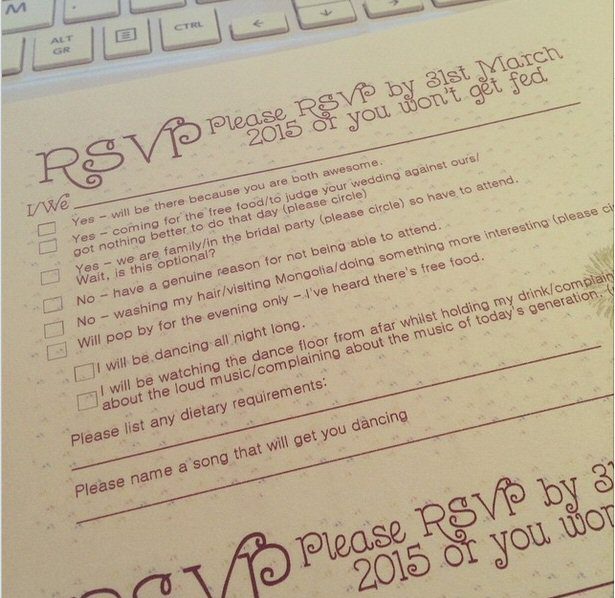 M
ALT
GR
CTRL
←
↓
→
RSVP Please RSVP by 31st March
2015 or you won't get fed
I/We
Yes – will be there because you are both awesome.
Yes – coming for the free food/to judge your wedding against ours/
got nothing better to do that day (please circle)
Yes – we are family/in the bridal party (please circle) so have to attend.
Wait, is this optional?
No – have a genuine reason for not being able to attend.
No – washing my hair/visiting Mongolia/doing something more interesting (please
Will pop by for the evening only – I've heard there's free food.
I will be dancing all night long.
I will be watching the dance floor from afar whilst holding my drink/
about the loud music/complaining about the music of today's generation.
Please list any dietary requirements:
Please name a song that will get you dancing
RSVP Please RSVP by
2015 or you